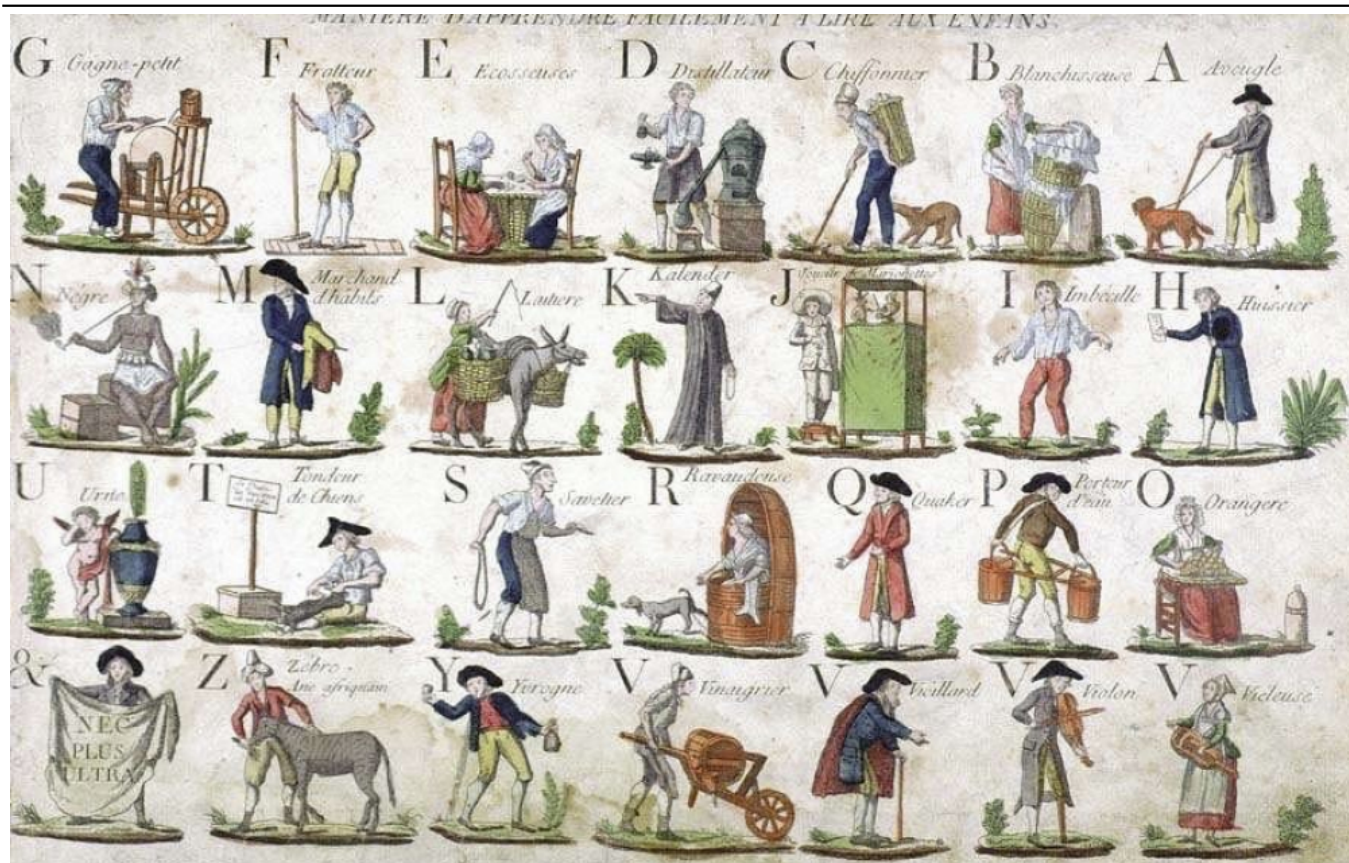 MANIERE D'APPRENDRE FACILEMENT A LIRE AUX ENFANS.
G Gagne-petit
F Frotteur
E Ecosseuses
D Distillateur
C Chiffonnier
B Blanchisseuse
A Aveugle
N Nègre
M Marchand
d'habits
L Laitiere
K Kalender
J Joueur de Marionettes
I Imbécille
H Huissier
U Urne
T Tondeur
de Chiens
S Savetier
R Ravaudeuse
Q Quaker
P Porteur
d'eau
O Orangere
&
NEC
PLUS
ULTRA
Z Zébre
Ane afriquain
Y Yvrogne
V Vinaigrier
V Vieillard
V Violon
V Vieleuse